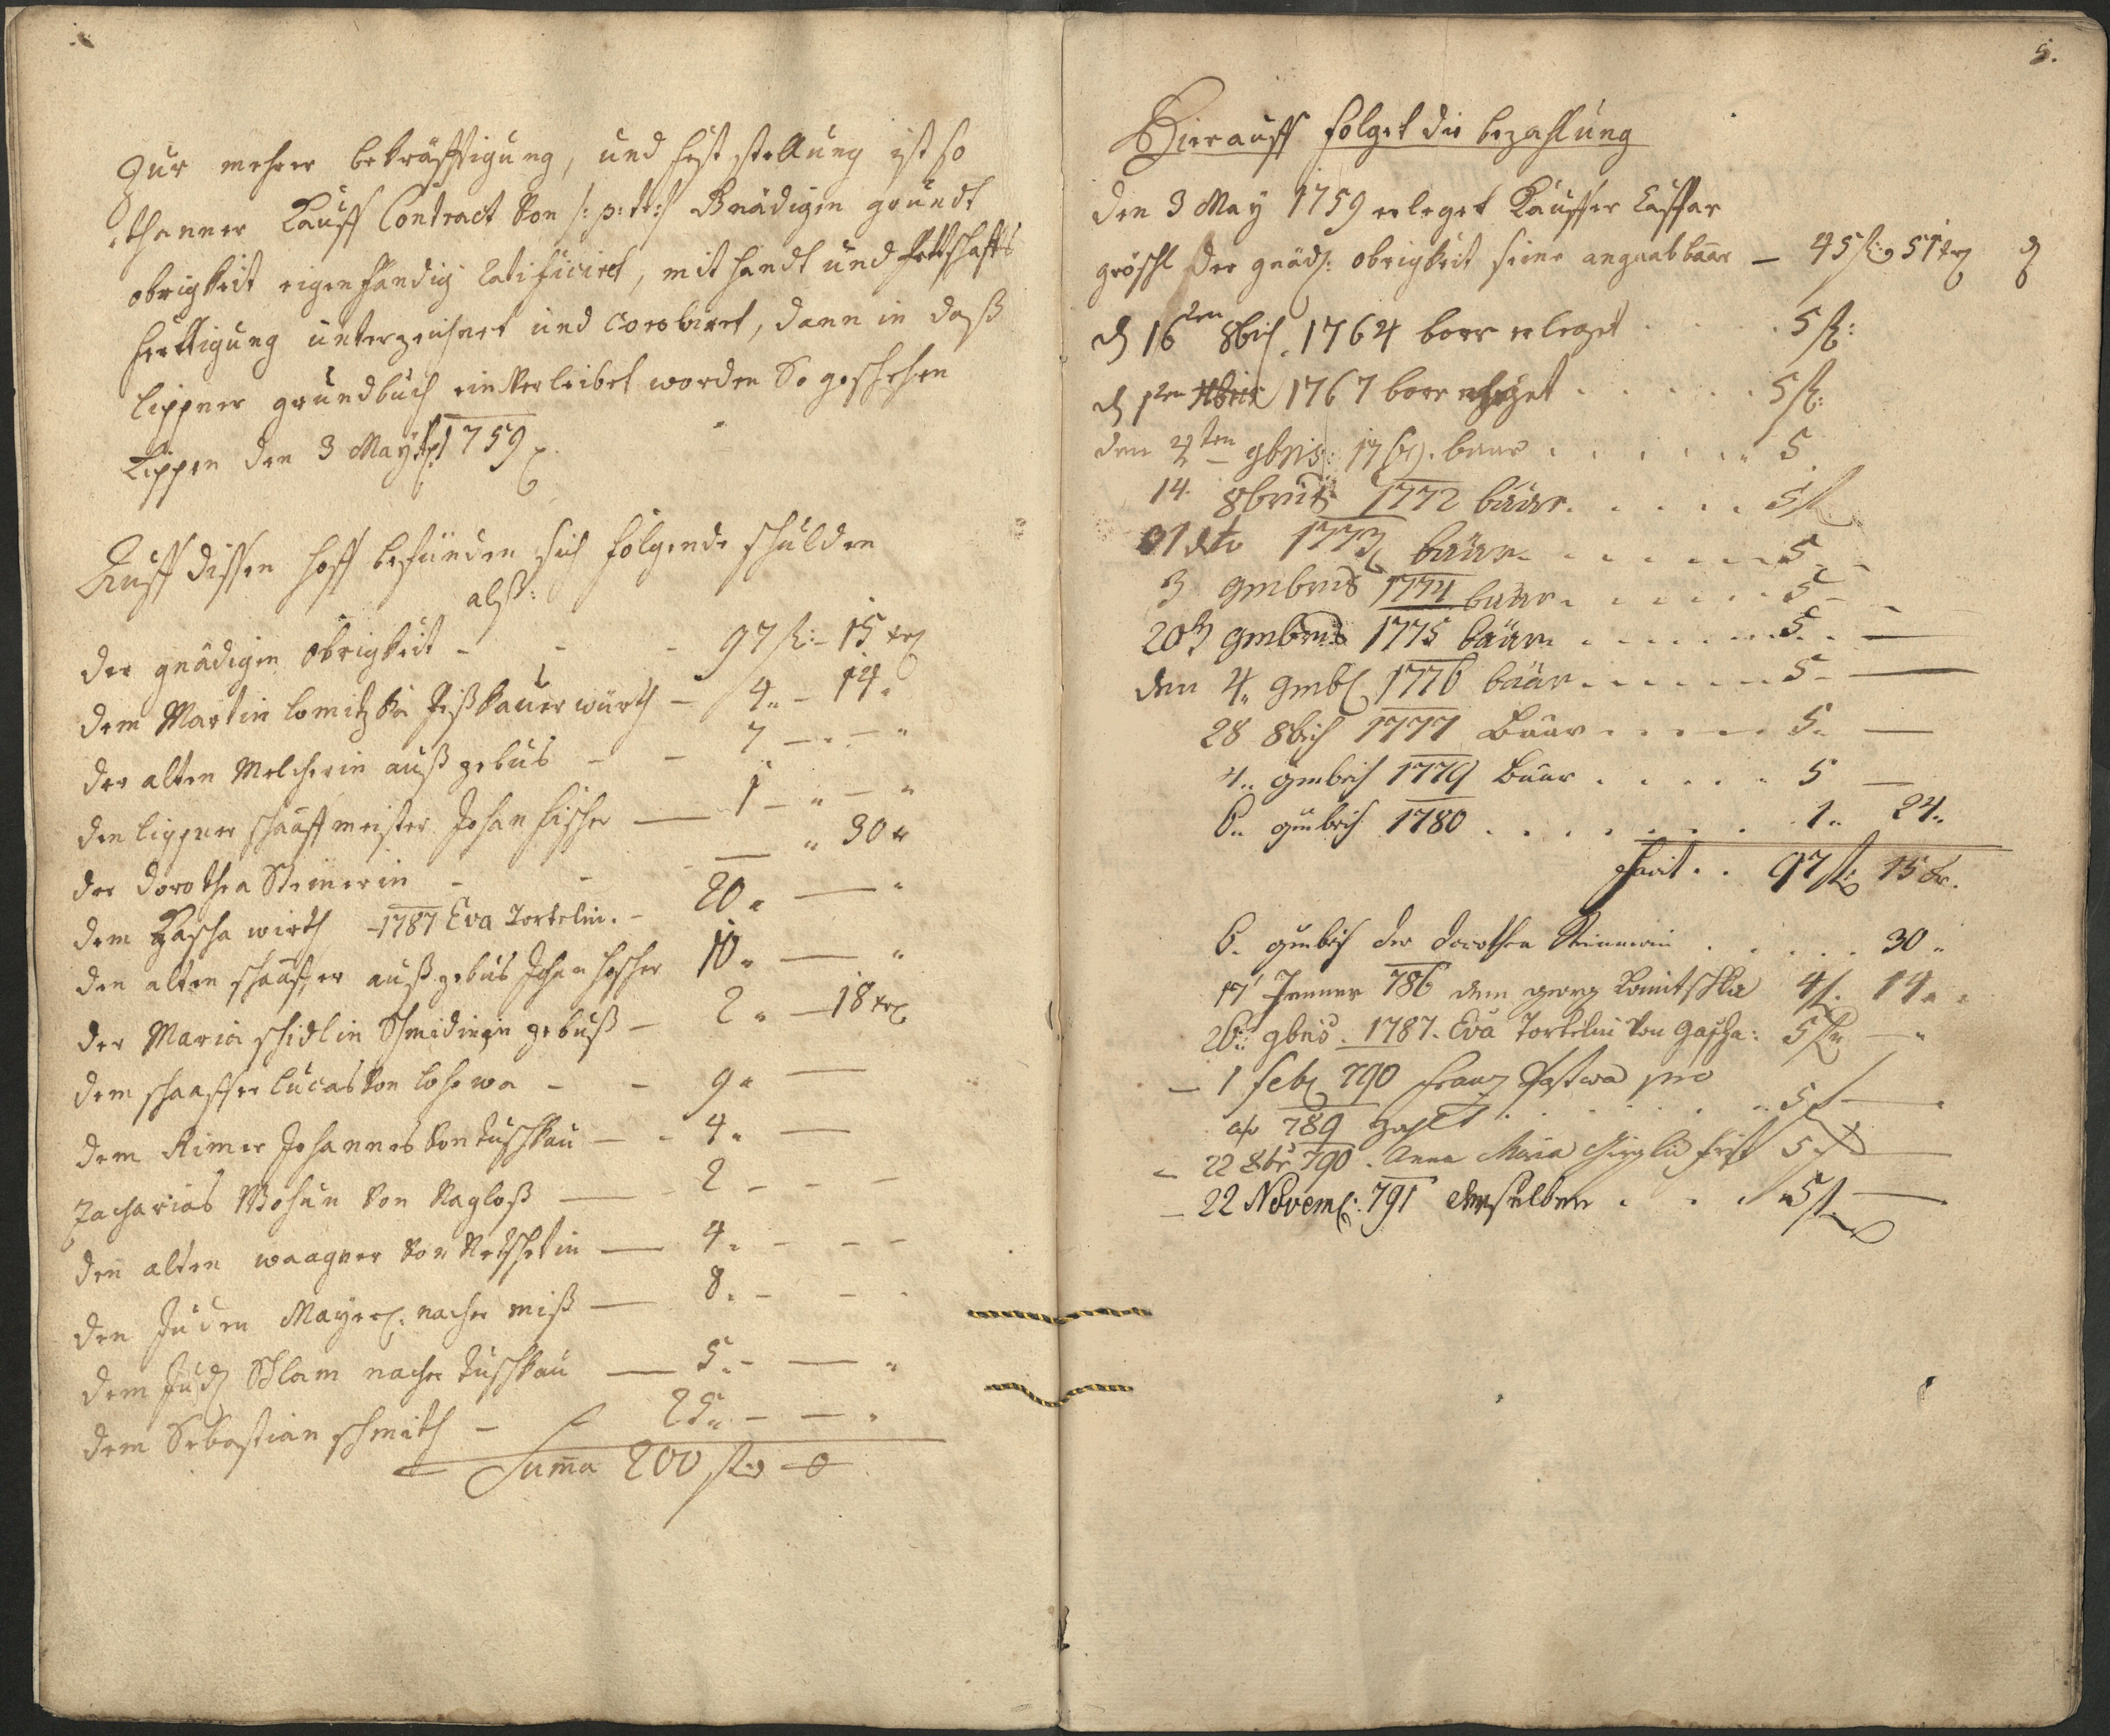 Zur mehrer bekräfftigung, und fest stellung ist so
thanner Kauff Contract von /: p: tt: / Gnädigen grundt
obrigkeit eigenhändig ratificiret, mit handt und Pettschaffts
ferttigung unterzeichnet und coroborirt, dann in daß
lippner grundbuch einverleibet worden So geschehen
Lippen den 3 May 1759
Auff dissen hoff befünden sich folgende schulden
alß:
der gnädigen Obrigkeit - - - 97 fl: - 15 xr
dem Martin lomitzka würth - 4 - 14
der alten Melcherin auß gebüs - - 7 - -
den lippner schaaffmeister Johan fischer — 1 - -
der Dorothea Steinerin - - — 30
dem Gascha wirth - 1787 Eva Tortelin. - 20 —
den alten schaaffer auß gebüs Johan 10 —
der Maria schidlin Schmidin gebuß - 2 — 18 xr
dem schaaffer Lucas von lohowa - - 9 —
dem Rimer Johannes von tuschkau - - 4 —
Zacharias Wohun von Nagloß — 2 - - -
den alten waagner von Netschetin — 4 - - -
den Juden Mayer: nacher miß — 8 - - -
dem Jud Schlam nacher tuschkau — 5 - —
dem Sebastian schmith - 25 - —
Suma 200 fl
5.
Hierauff folget die bezahlung
den 3 May 1759 erleget Kauffer Casspar
gröschl der gnäd: obrigkeit seine angaab baar — 45 fl 51 xr
d 16ten 8bris 1764 baar erleget . . . . 5 fl:
d 1ten 1767 baar erleget . . . . 5 fl:
den 9bris: baar . . . . . 5
14. 8bris 1772 baar. . . . . 5 fl
31 dto 1773 baar. . . . . 5 -
3 9mbris 1774 baar. . . . . 5 -
20 9mbris 1775 baar. . . . . 5 . —
den 4. 9mb 1776 baar. . . . . 5 - —
28 8bris 1777 Baar . . . . . 5 . —
4. 9mbris 1779 Baar . . . . . 5 —
6. 9mbris 1780 . . . . . . . 1. 24.
facit . . 97 fl 15 xr.
6. 9mbris der Dorothea Steinerin . . . . . 30
17 Jenner 786 dem georg Lomitschka 4 f. 14
26 9bris. 1787. Eva Tortelin von Gascha: 5 fl —
— 1 feb 790 Franz pro
ao 789 zahlt . . . . . 5 f —
— 22 790. Anna Maria frist 5 f —
— 22 Novem: 791 derselben . . . 5 f —